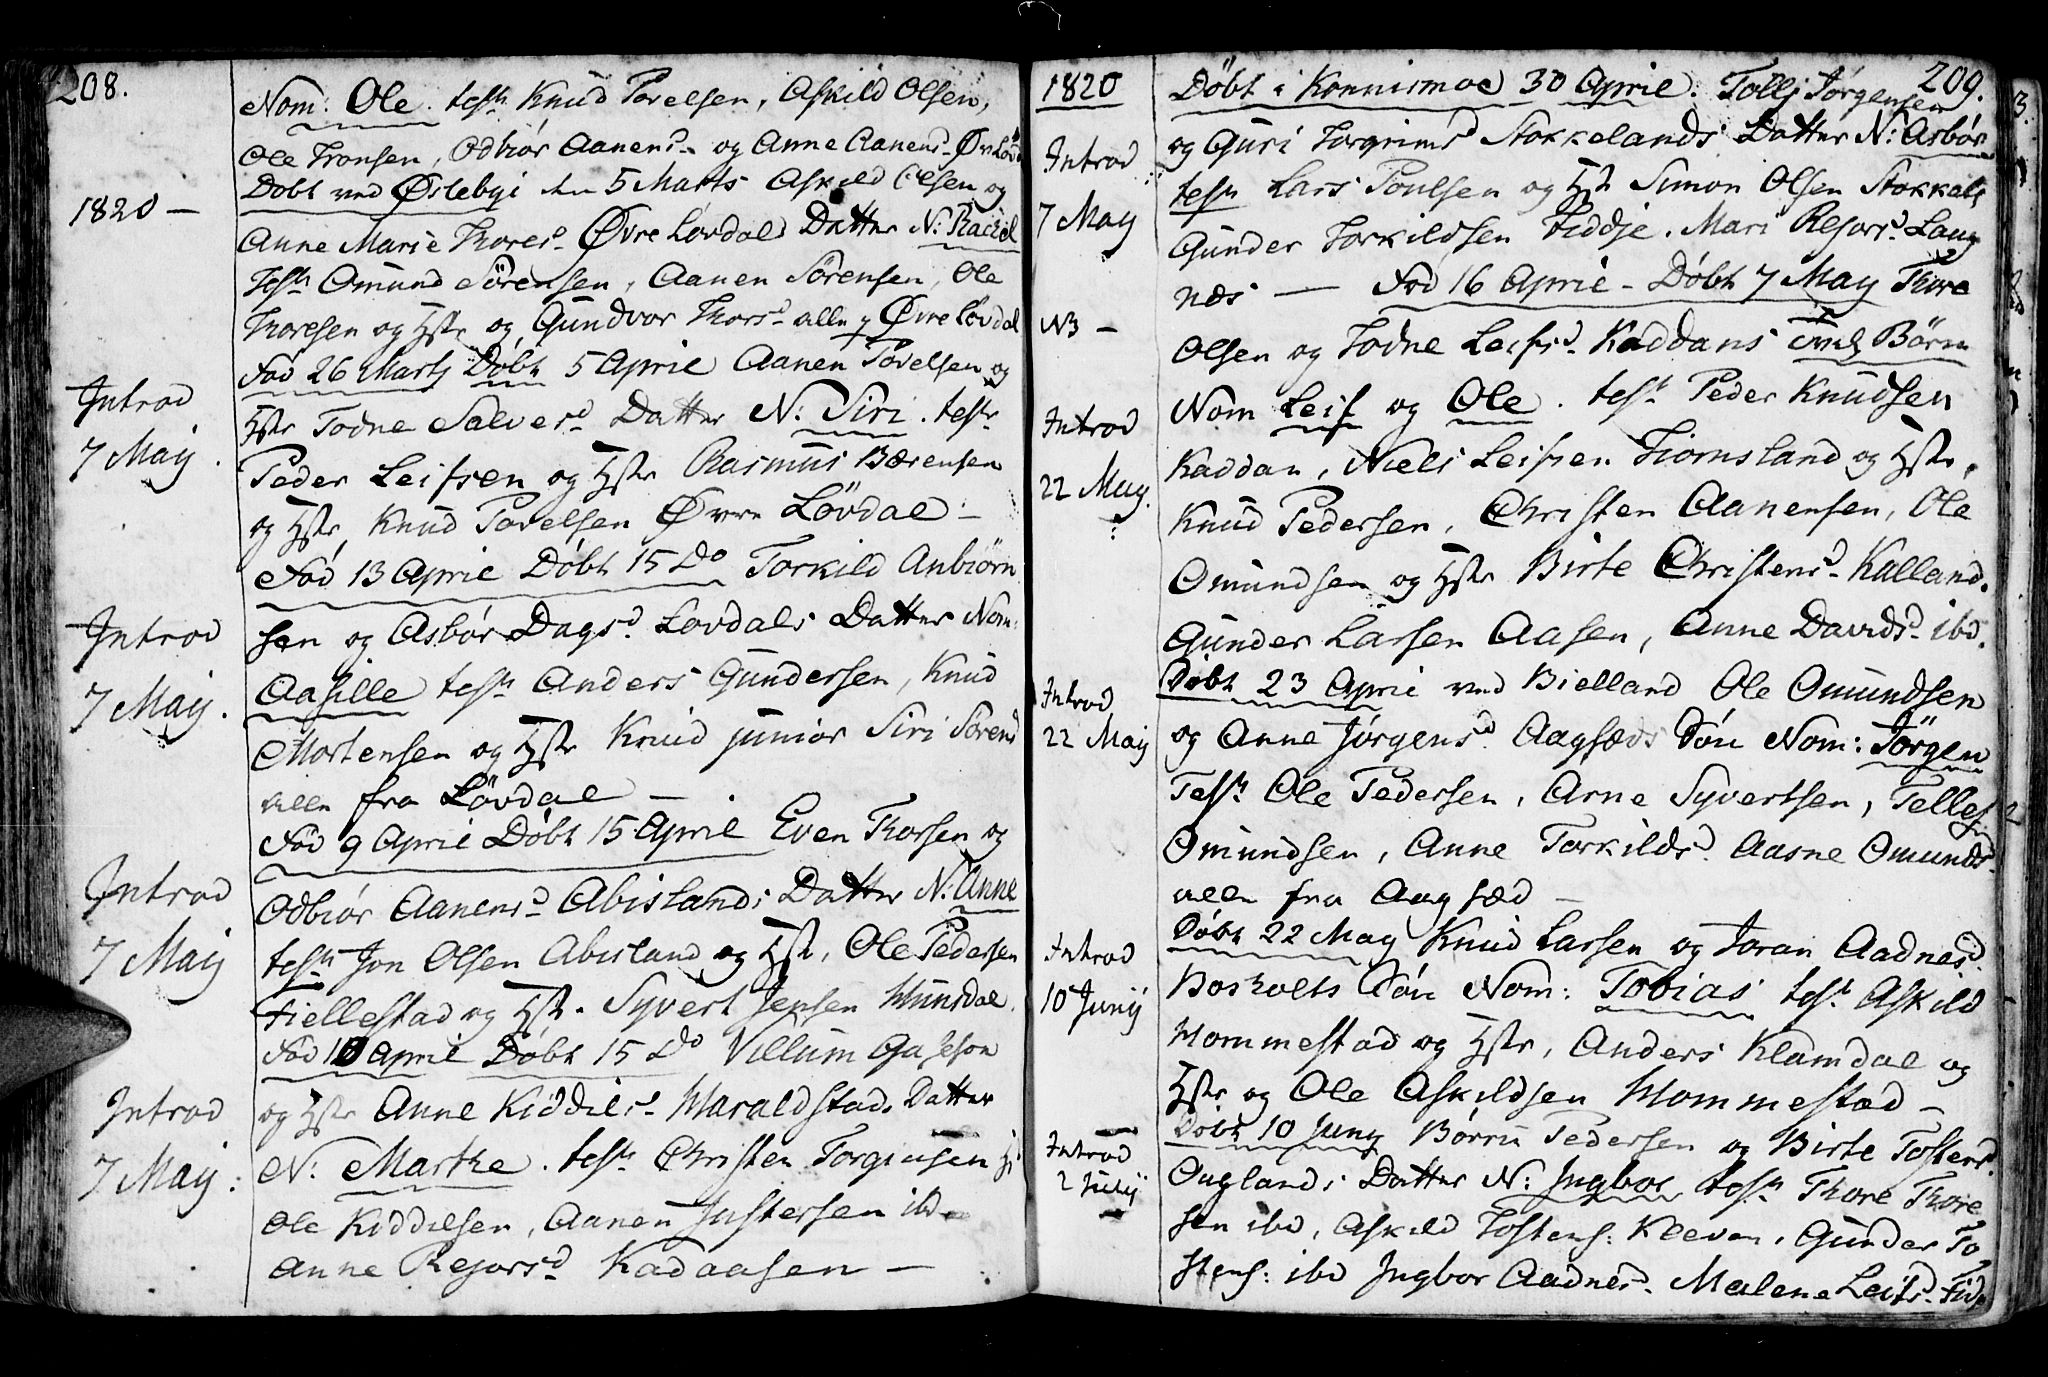 208.
Nom: Ole. test. Knud Povelsen, Askild Olsen,
Ole Tronsen, Odbiør Aanensd. og Anne Aanensd. Øv: Løvd
1820 —
Døbt ved Øslebyi den 5 Marts Askild Olsen og
Anne Marie Thoresd. Øvre Løvdals Datter N: Rachel
Test. Omund Sörensen, Aanen Sörensen, Ole
Thoresen og Hstr og Gundvor Thorsd. alle Øvre Løvdal
Introd
7 Maij.
Fød 26 Marts Døbt 5 Aprie Aanen Povelsen og
Hstr Todne Salvesd Datter N: Siri. test
Peder Leifsen og Hstr Rasmus Bærensen
og Hstr, Knud Povelsen Øvre Lövdal —
Introd
7 Maij.
Fød 13 Aprie Døbt 15 Do Torkild Anbiørn
sen og Asbør Dagsd. Lovdals Datter Nom:
Aasille test Anders Gundersen, Knud
Mortensen og Hstr Knud junior Siri Sørensd
alle fra Lövdal —
Introd
7 Maij
Fød 9 Aprie Døbt 15 Aprie Even Thorsen og
Odbiør Aanensd. Abislands Datter N: Anne
test Jon Olsen Abisland og Hst, Ole Pedersen
Fiellestad og Hst. Syvert Jensen Hunsdal.
Introd
7 Maij:
Fød 10 Aprie Døbt 15 Do Villum
og Hstr Anne Kiddelsd. Haraldstads Datter
N: Marthe. test. Christen Torgiusen
Ole Kiddelsen, Aanen Justersen ibd
Anne Rejorsd. Kadaasen —

1820
209.
Introd
7 May
Døbt i Konnismoe 30 Aprie. Tollj Jørgensen
og Guri Torgrimsd Stokkelands Datter N: Asbør
test Lars Poulsen og Hst Simon Olsen Stokkel:
Gunder Torkildsen Fiddje. Mari Rejorsd. Laug
næs — Fød 16 Aprie — Døbt 7 May Thore
NB —
Olsen og Todne Leifsd. Kaddans Börn
Introd
22 May.
Nom Leif og Ole. test Peder Knudsen
Kaddan, Niels Leifsen Tiomsland og Hstr,
Knud Pedersen, Christen Aanensen, Ole
Omundsen og Hstr Birte Christensd. Kalland.
Gunder Larsen Aasen, Anne Davidsd. ibd.
Introd
22 Maij
Døbt 23 Aprie ved Bielland Ole Omundsen
og Anne Jørgensd. Aagsæds Søn Nom: Jørgen
Test. Ole Pedersen, Arne Syvertsen, Tellef
Omundsen, Anne Torkildsd. Aasne Omundsd.
alle fra Aagsæd —
Introd
10 Junij
Døbt 22 May Knud Larsen og Joran Aadnesd.
Bosholts Søn Nom: Tobias test Askild
Hommestad og Hstr, Anders Klamdal og
Hstr og Ole Askildsen Hommestad —
Introd
2 Julij
Døbt 10 Juny Börru Pedersen og Birte Tostensd.
Ouglands Datter N: Ingbor test Thore Thore
sen ibd, Askild Tostens: Kleven, Gunder To
stens: ibd Ingbor Aadnesd. Malene Leifsd.